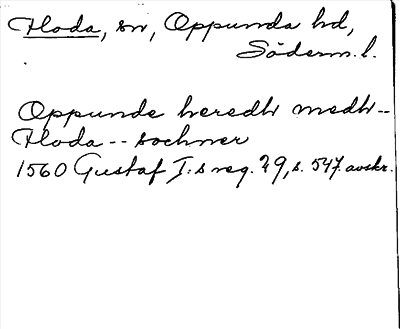 Floda, sn, Oppunda hd,
Söderm. l.
Oppunde heredh medh--
Floda -- sochner
1560 Gustaf I:s reg. 29, s. 547. avskr.